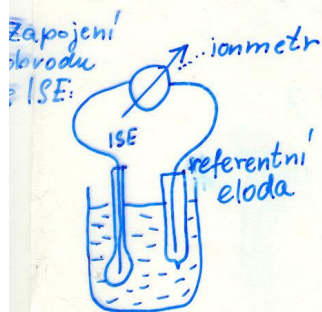 Zapojení
obvodu
s ISE:
ionmetr
ISE
referentní
eloda